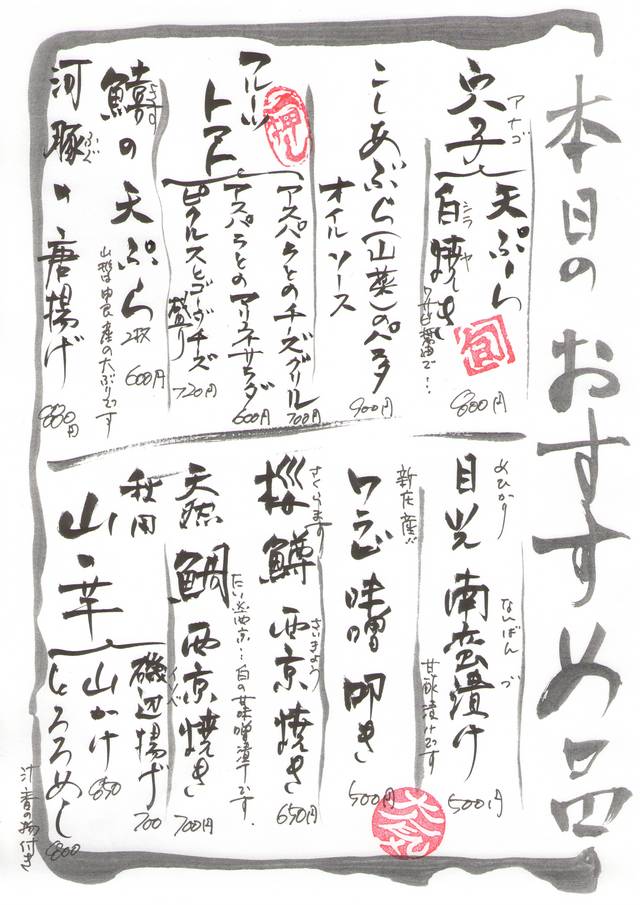 本日のおすすめ品
穴子
アナゴ
天ぷら
白焼き
シラヤ
800円
こしあぶら(山菜)のペペロンチーノ
オイルソース
900円
フルーツ
トマト
アスパラとのチーズグリル
700円
アスパラとのマリネサラダ
600円
ピクルスとゴーダチーズ
盛り
720円
鱚の天ぷら
きす
2枚
600円
河豚の唐揚げ
ふぐ
880円
旬
目光 南蛮漬け
めひかり
なんばんづ
甘酢漬けです
500円
新庄産
ワラビ 味噌叩き
500円
桜鱒 西京焼き
さくらます
さいきょう
650円
天然鯛 西京焼き
白の甘味噌漬けです。
700円
秋田
山の芋
磯辺揚げ
イソベ
700
山かけ
850
とろろめし
800
汁・香の物付き